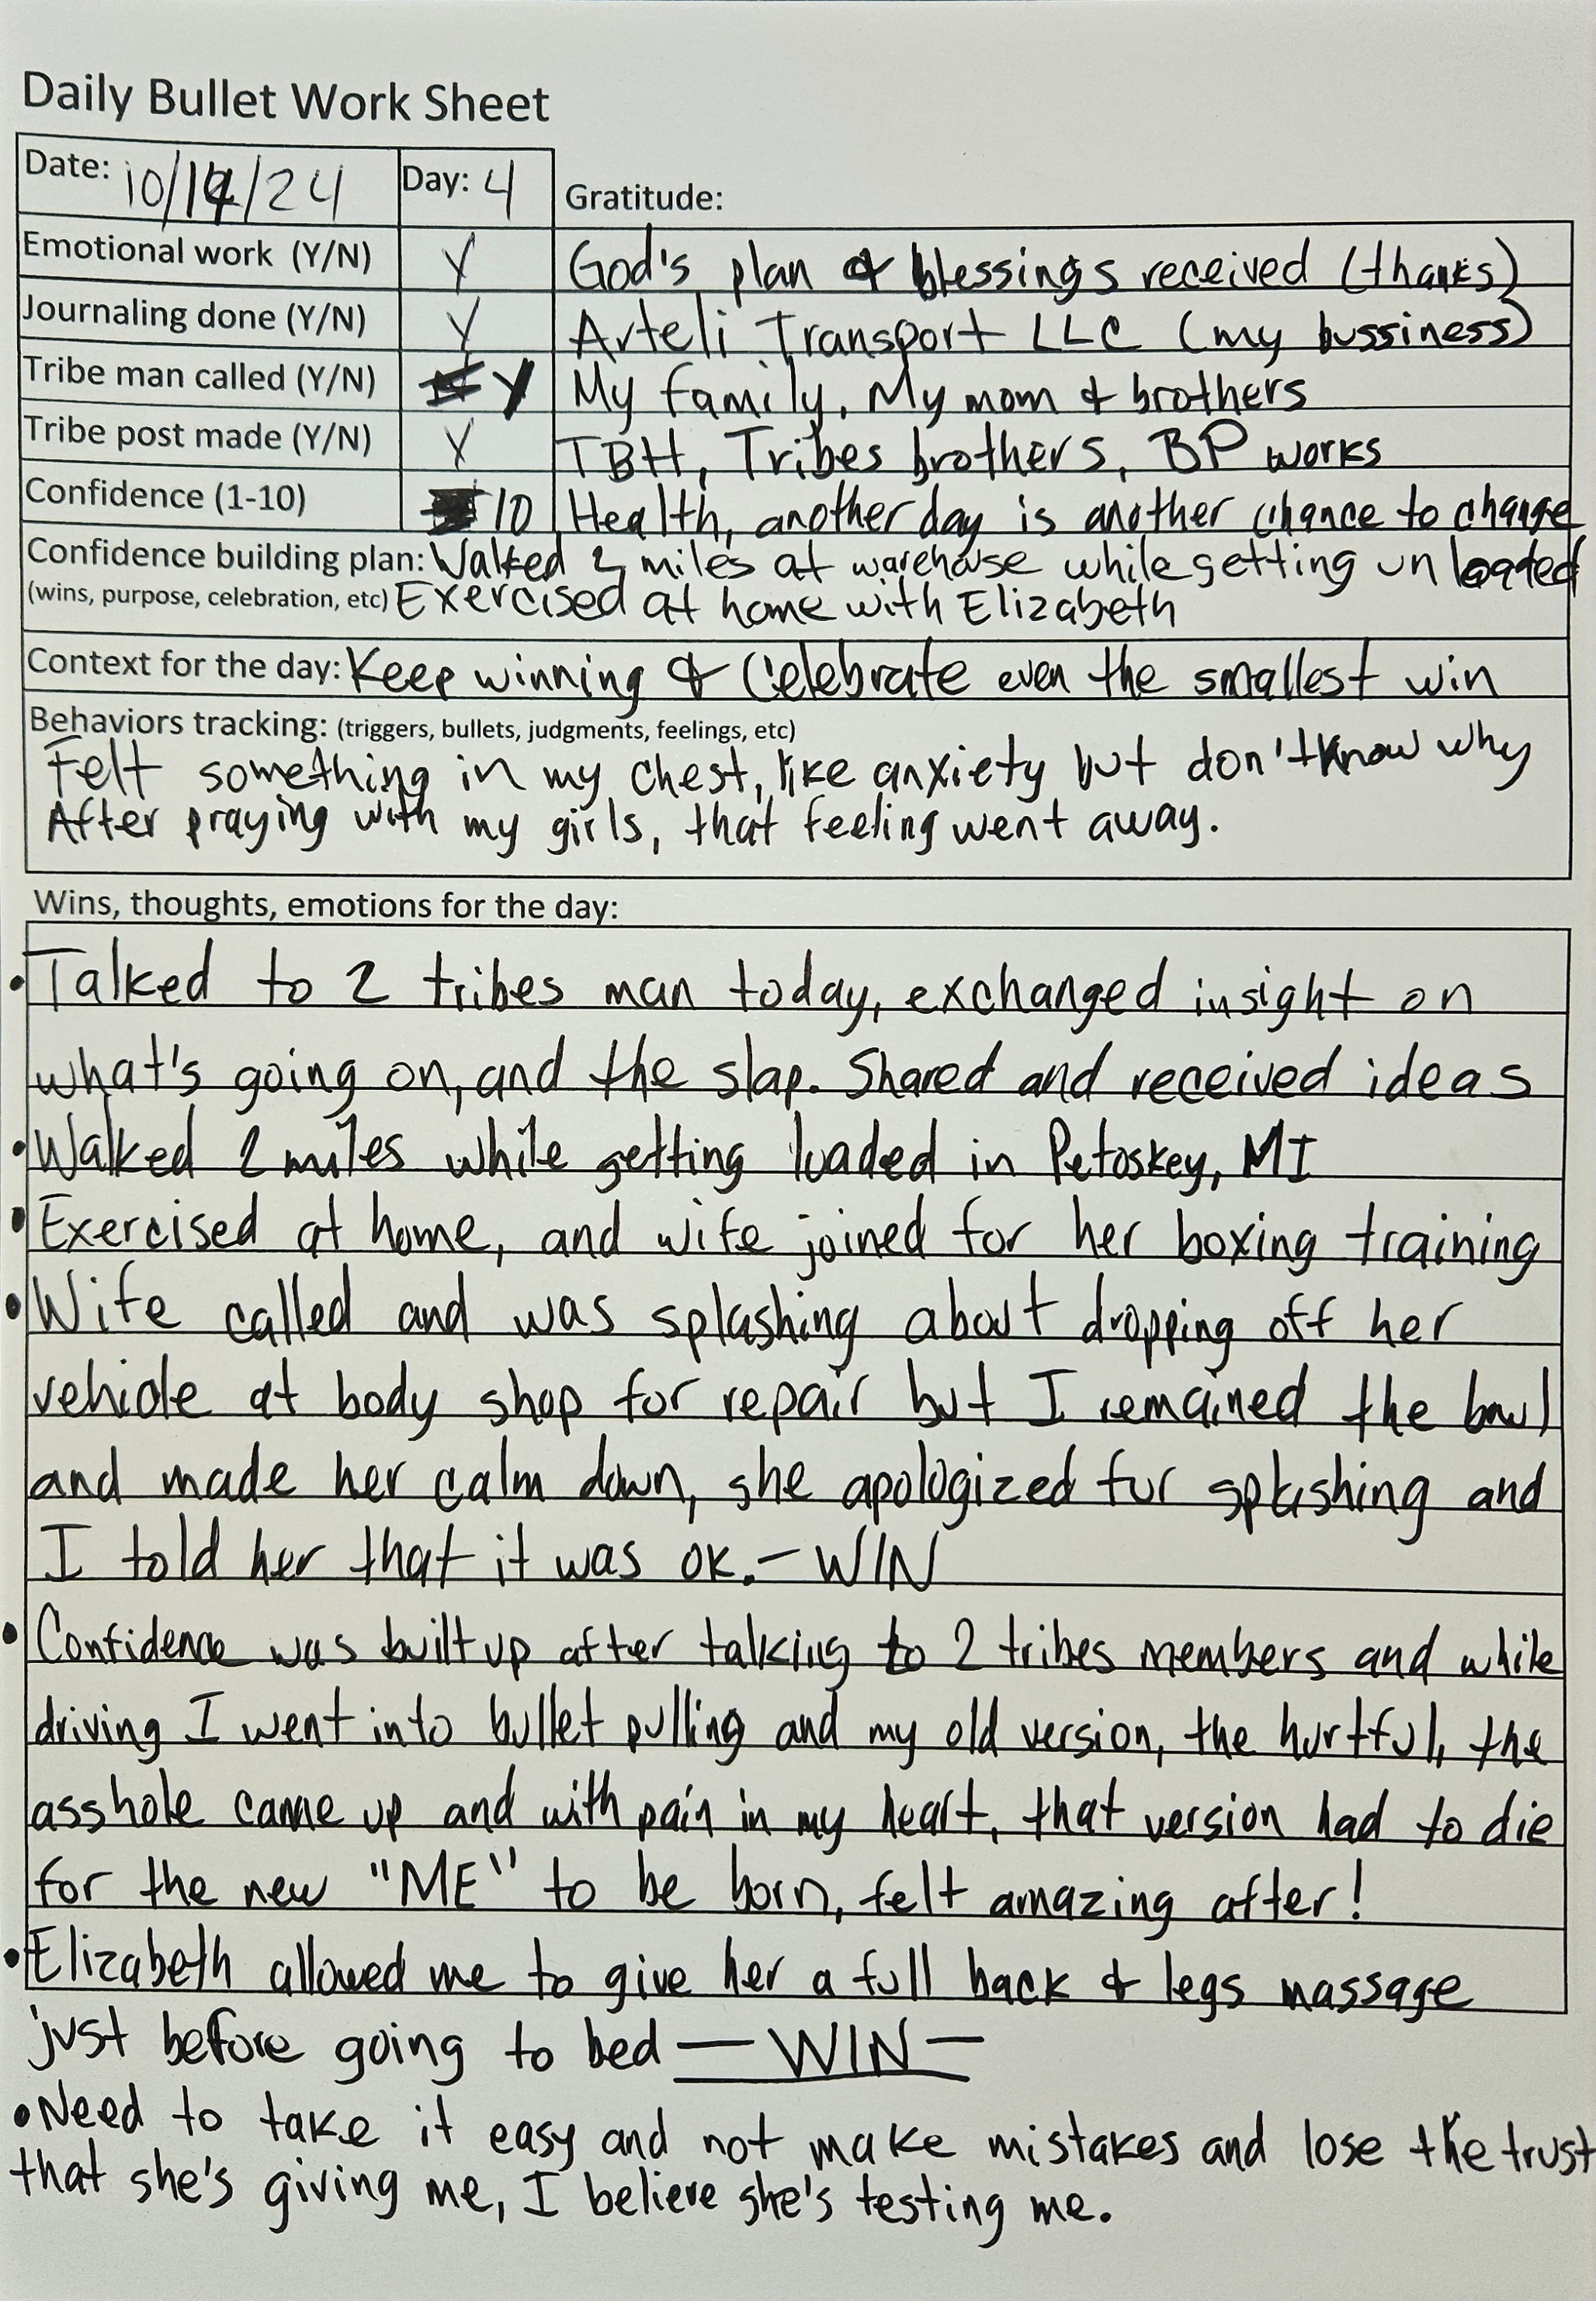 Daily Bullet Work Sheet
Date: 10/14/24 Day: 4 Gratitude:
Emotional work (Y/N) Y God's plan & blessings received (thanks)
Journaling done (Y/N) Y Arteli Transport LLC (my bussiness)
Tribe man called (Y/N) Y My family, My mom & brothers
Tribe post made (Y/N) Y TBH, Tribes brothers, BP works
Confidence (1-10) 10 Health, another day is another chance to change
Confidence building plan: Walked 2 miles at warehouse while getting unloaded
(wins, purpose, celebration, etc) Exercised at home with Elizabeth
Context for the day: Keep winning & Celebrate even the smallest win
Behaviors tracking: (triggers, bullets, judgments, feelings, etc)
Felt something in my chest, like anxiety but don't know why
After praying with my girls, that feeling went away.
Wins, thoughts, emotions for the day:
• Talked to 2 tribes man today, exchanged insight on
what's going on, and the slap. Shared and received ideas
• Walked 2 miles while getting loaded in Petoskey, MI
• Exercised at home, and wife joined for her boxing training
• Wife called and was splashing about dropping off her
vehicle at body shop for repair but I remained the bowl
and made her calm down, she apologized for splashing and
I told her that it was ok. - WIN
• Confidence was built up after talking to 2 tribes members and while
driving I went into bullet pulling and my old version, the hurtful, the
asshole came up and with pain in my heart, that version had to die
for the new "ME" to be born, felt amazing after!
• Elizabeth allowed me to give her a full back & legs massage
just before going to bed — WIN —
• Need to take it easy and not make mistakes and lose the trust
that she's giving me, I believe she's testing me.